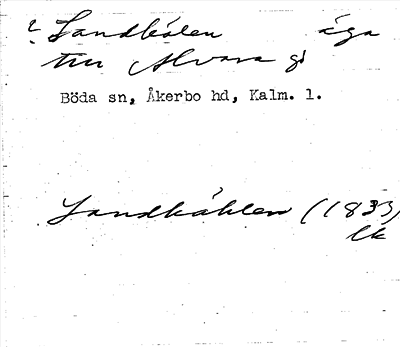 ? Sandkålen äga
tru Alvara gd
Böda sn, Åkerbo hd, Kalm. l.
Sandkåhlen (1833)
lk